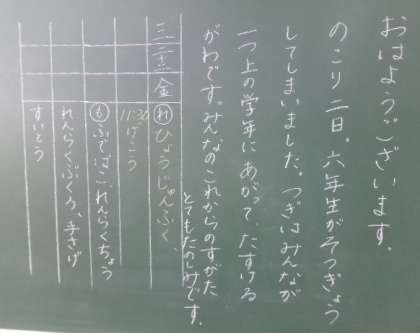 おはようございます。
のこり二日。六年生がそつぎょう
してしまいました。つぎはみんなが
一つ上の学年にあがって、たすける
がわです。みんなのこれからのすがた
とてもたのしみです。
三 二十二 金
れ ひょうじゅんふく、
11:30 げこう
も ふでばこ、れんらくちょう
れんらくぶくろ、手さげ
すいとう